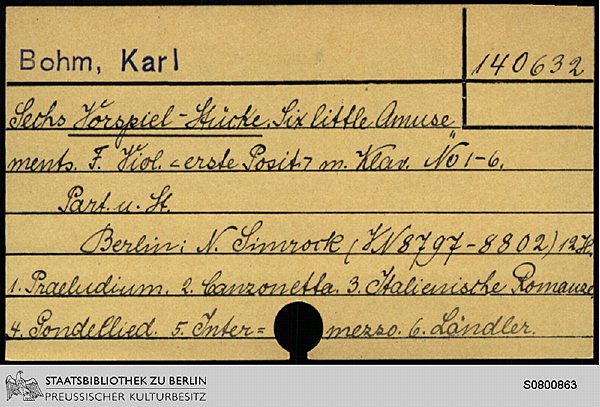 Bohm, Karl
140632
Sechs Vorspiel-Stücke. Six little Amuse
ments. F. Viol. <erste Posit.> m. Klav. No 1-6.
Part. u. St.
Berlin: N. Simrock (VN 8797-8802) 12 H.
1. Praeludium. 2. Canzonetta. 3. Italienische Romanze.
4. Gondellied. 5. Inter= mezzo. 6. Ländler.
STAATSBIBLIOTHEK ZU BERLIN
PREUSSISCHER KULTURBESITZ
S0800863